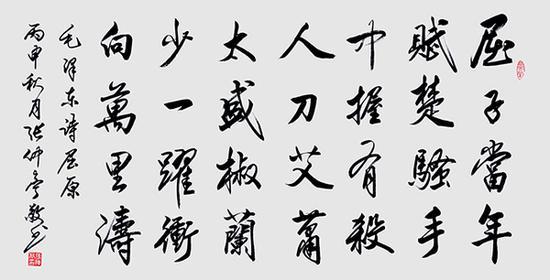 屈子當年
賦楚騷手
中握有殺
人刀艾蕭
太盛椒蘭
少一躍衝
向萬里濤
毛泽东诗屈原
丙申秋月张仲亭敬书